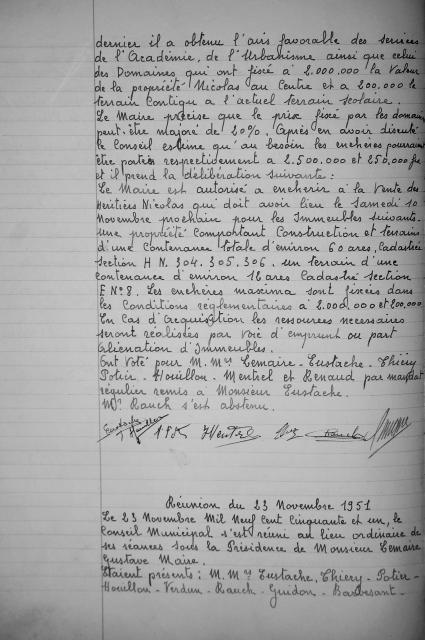 dernier il a obtenu l'avis favorable des services
de l'Académie, de l'Urbanisme ainsi que celui
des Domaines, qui ont fixé à 2.000.000 la valeur
de la propriété Nicolas au Centre et à 200.000 le
terrain contigu à l'actuel terrain scolaire.
Le Maire précise que le prix fixé par les domaines
peut-être majoré de 20%. Après en avoir discuté
le Conseil estime qu'au besoin les enchères pourraient
être portées respectivement à 2.500.000 et 250.000 frs
et il prend la délibération suivante :
Le Maire est autorisé à enchérir à la vente des
Héritiers Nicolas qui doit avoir lieu le Samedi 10
Novembre prochain pour les Immeubles suivants.
une propriété comportant Construction et terrains
d'une contenance totale d'environ 60 ares, Cadastrée
Section H N. 304. 305. 306. un terrain d'une
contenance d'environ 16 ares Cadastré section
E N° 8. Les enchères maxima sont fixées dans
les Conditions réglementaires à 2.000.000 et
En Cas d'Acquisition les ressources nécessaires
seront réalisées par voie d'emprunt ou part
aliénation d'Immeubles.
Ont voté pour M. Mrs Lemaire - Eustache - Thiéry
Potier - Houillon - Mentrel et Renaud par mandat
régulier remis à Monsieur Eustache.
Mr. Rauch s'est abstenu.
Eustache
Mentrel Rauch
Réunion du 23 Novembre 1951
Le 23 Novembre Mil Neuf Cent Cinquante et un, le
Conseil Municipal s'est réuni au lieu ordinaire de
ses séances sous la Présidence de Monsieur Lemaire
Gustave Maire.
Etaient présents : M. Mrs Eustache, Thiéry - Potier -
Houillon - Verdun - Rauch - Guidon - Barbesant -